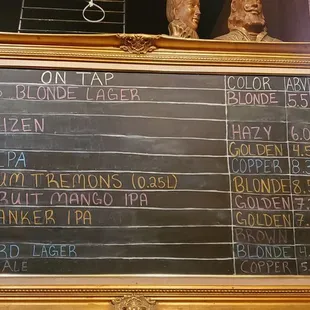 ON TAP COLOR ABV
BLONDE LAGER BLONDE 5.5
IZEN HAZY 6.0
PA GOLDEN 4.5
COPPER 8.
UM TREMONS (0.25L) BLONDE 8.5
RUIT MANGO IPA GOLDEN 7.
ANKER IPA GOLDEN 7.
BROWN
RD LAGER BLONDE 4.
ALE COPPER 5